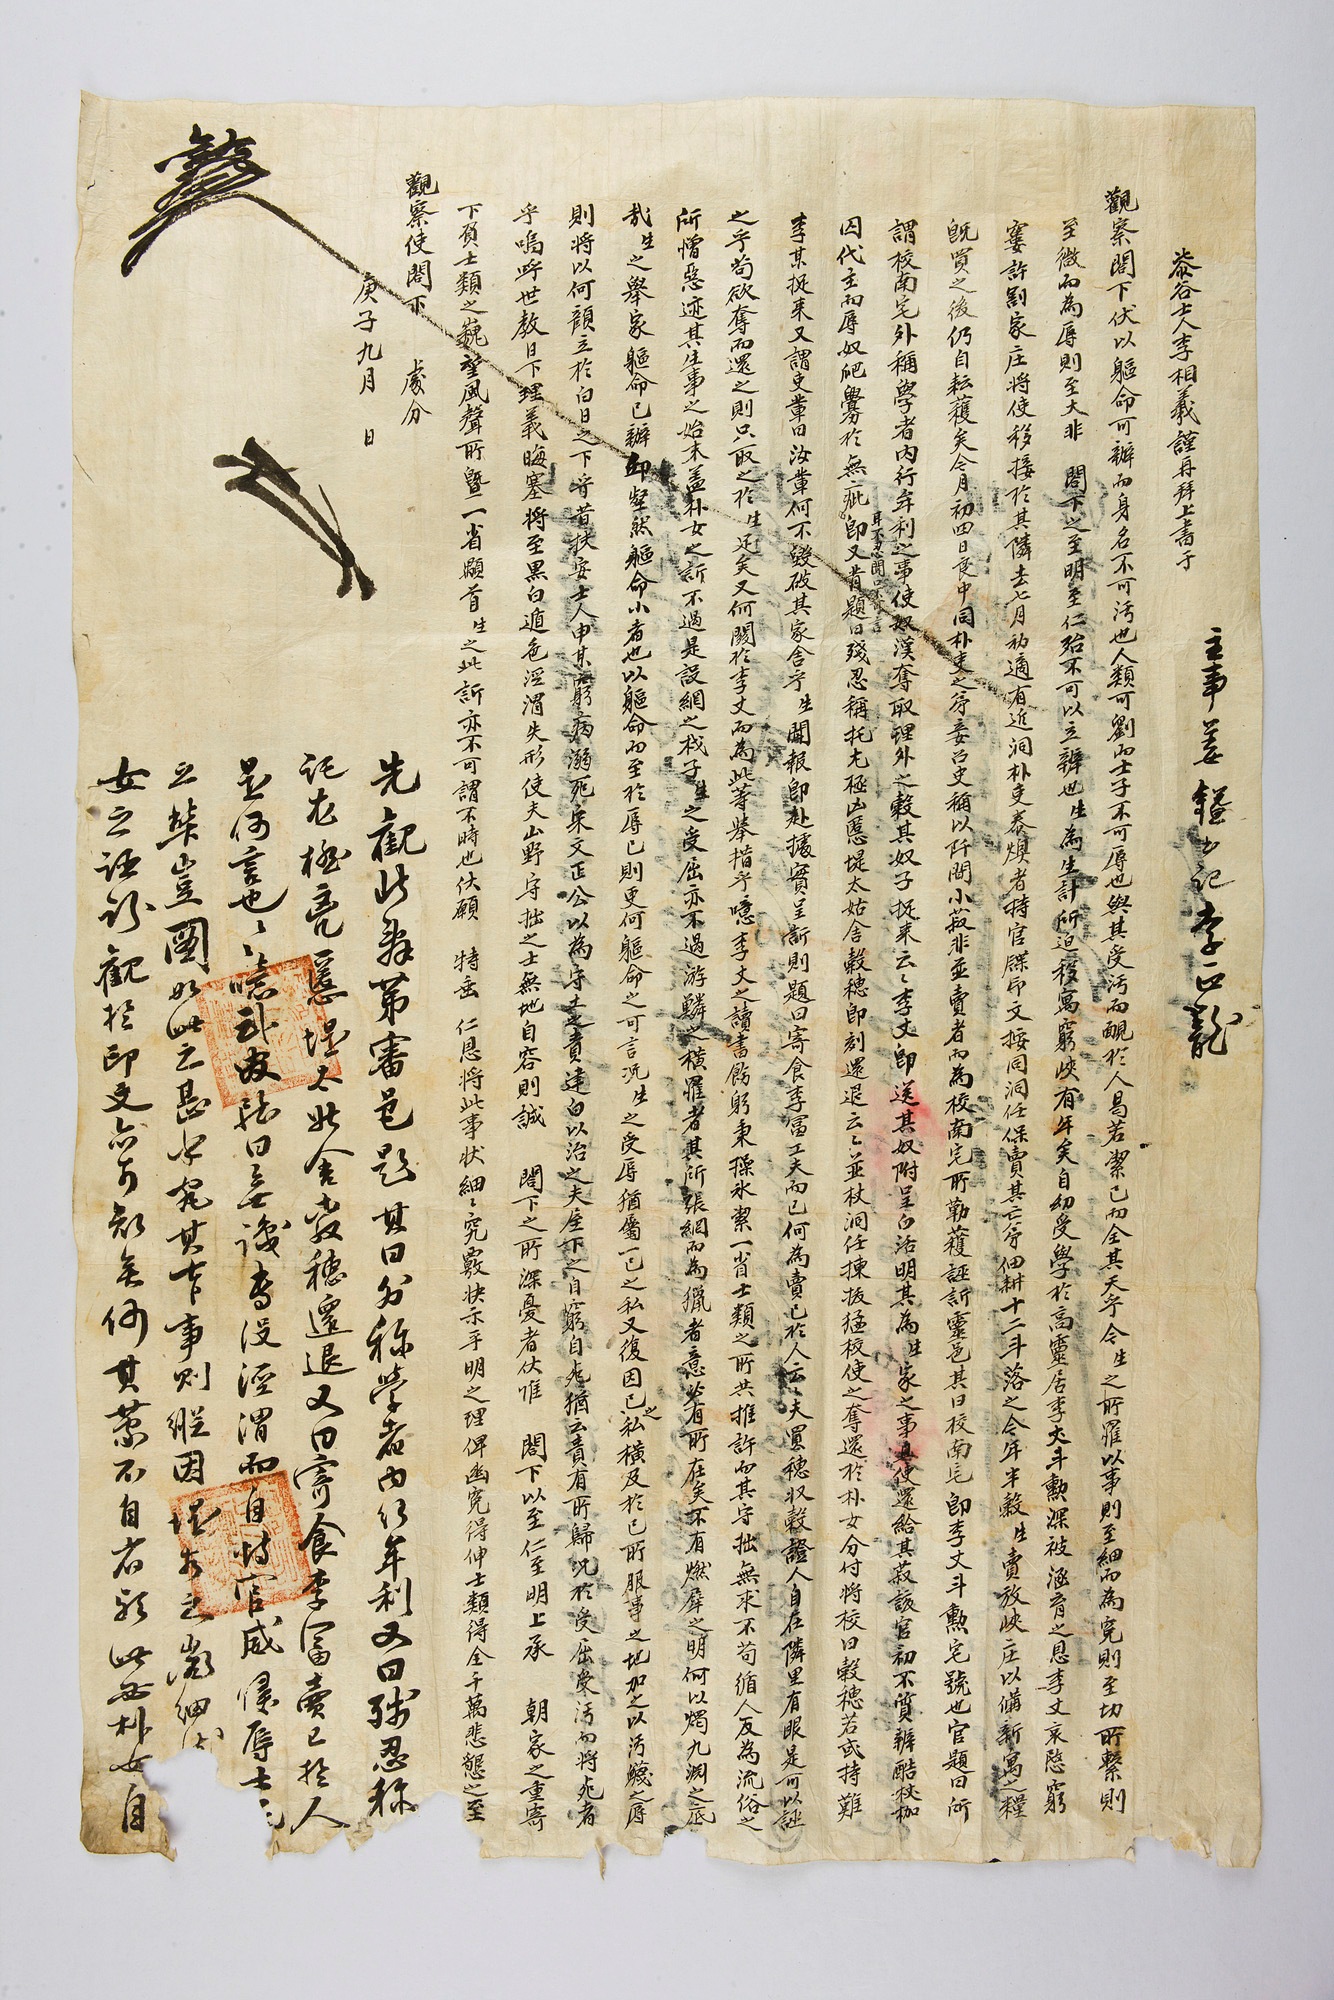 主事姜 書記 李 龍
漆谷士人李相羲謹再拜上書于
觀察閤下伏以軀命可辦而身名不可汚也人類可劉而士子不可辱也與其受汚而靦於人曷若潔己而全其天乎今生之所罹以事則至細而爲寃則至切所繫則
至微而爲辱則至大非 閤下之至明至仁殆不可以立辨也生爲生計所迫移寓窮峽有年矣自幼受學於高靈居李丈斗勳深被涵育之恩李丈哀愍窮
窶許割家庄將使移接於其隣去七月初適有近洞朴吏泰煥者持官牒印文按同洞任保賣其亡弟畓耕十二斗落之今年半穀生賣放峽庄以備新寓之糧
旣買之後仍自耘穫矣今月初四日夜中同朴吏之弟妾呂史稱以阡間小菽非並賣者而爲校南宅所勒穫誣訴靈邑其曰校南宅卽李丈斗勳宅號也官題曰所
謂校南宅外稱學者內行牟利之事使奴漢奪取理外之穀其奴子捉來云云李丈卽送其奴附呈白活明其爲生家之事具使還給其菽該官初不質辨酷杖枷
囚代主而辱奴爬釁於無疵卽又背題曰殘忍稱托尤極凶慝堤太姑舍穀穗卽刻還退云云並杖洞任揀拔猛校使之奪還於朴女分付將校曰穀穗若或持難
耳不忍聞口不 言
李某捉來又謂吏輩曰汝輩何不毁破其家舍乎生聞報卽赴據實呈訴則題曰寄食李富工夫而已何爲賣己於人云云夫買穗收穀證人自在隣里有眼是可以誣
之乎苟欲奪而還之則只取之於生足矣又何關於李丈而爲此等擧措乎噫李丈之讀書飭躬秉操氷潔一省士類之所共推許而其守拙無求不苟循人反爲流俗之
所憎惡迹其生事之始末盖朴女之訴不過是設網之棧子生之受屈亦不過游鱗之橫罹者其所張網而爲獵者意必有所在矣不有燃犀之明何以燭九淵之底
哉生之擧家軀命已辦卽壑然軀命小者也以軀命而至於辱已則更何軀命之可言况生之受辱猶屬一己之私又復因己之私橫及於己所服事之地加之以汚衊之辱
則將以何顔立於白日之下乎昔扶安士人申某窮病溺死宋文正公以爲守土之責達白以治之夫崖下之自窮自死猶云責有所歸况於受屈受汚而將死者
乎嗚呼世敎日下理義晦塞將至黑白遁色涇渭失形使夫山野守拙之士無地自容則誠 閤下之所深憂者伏惟 閤下以至仁至明上承 朝家之重寄
下負士類之巍望風聲所曁一省顒首生之此訴亦不可謂不時也伏願 特垂 仁恩將此事狀細細究覈快示平明之理俾幽寃得伸士類得全千萬悲懇之至
觀察使閤下 處分
庚子九月 日
先觀此弄第審邑題其曰外稱學者內行牟利又曰殘忍稱
託尤極凶慝堤太姑舍穀穗還退又曰寄食李富賣己於人
是何言也 噫 曰 涇渭而自恃官威侵辱士
之弊豈圖如此之甚也究其 事則縱因 之 細
女之誣訴觀於印文亦可知矣何其 不自 此女朴女自